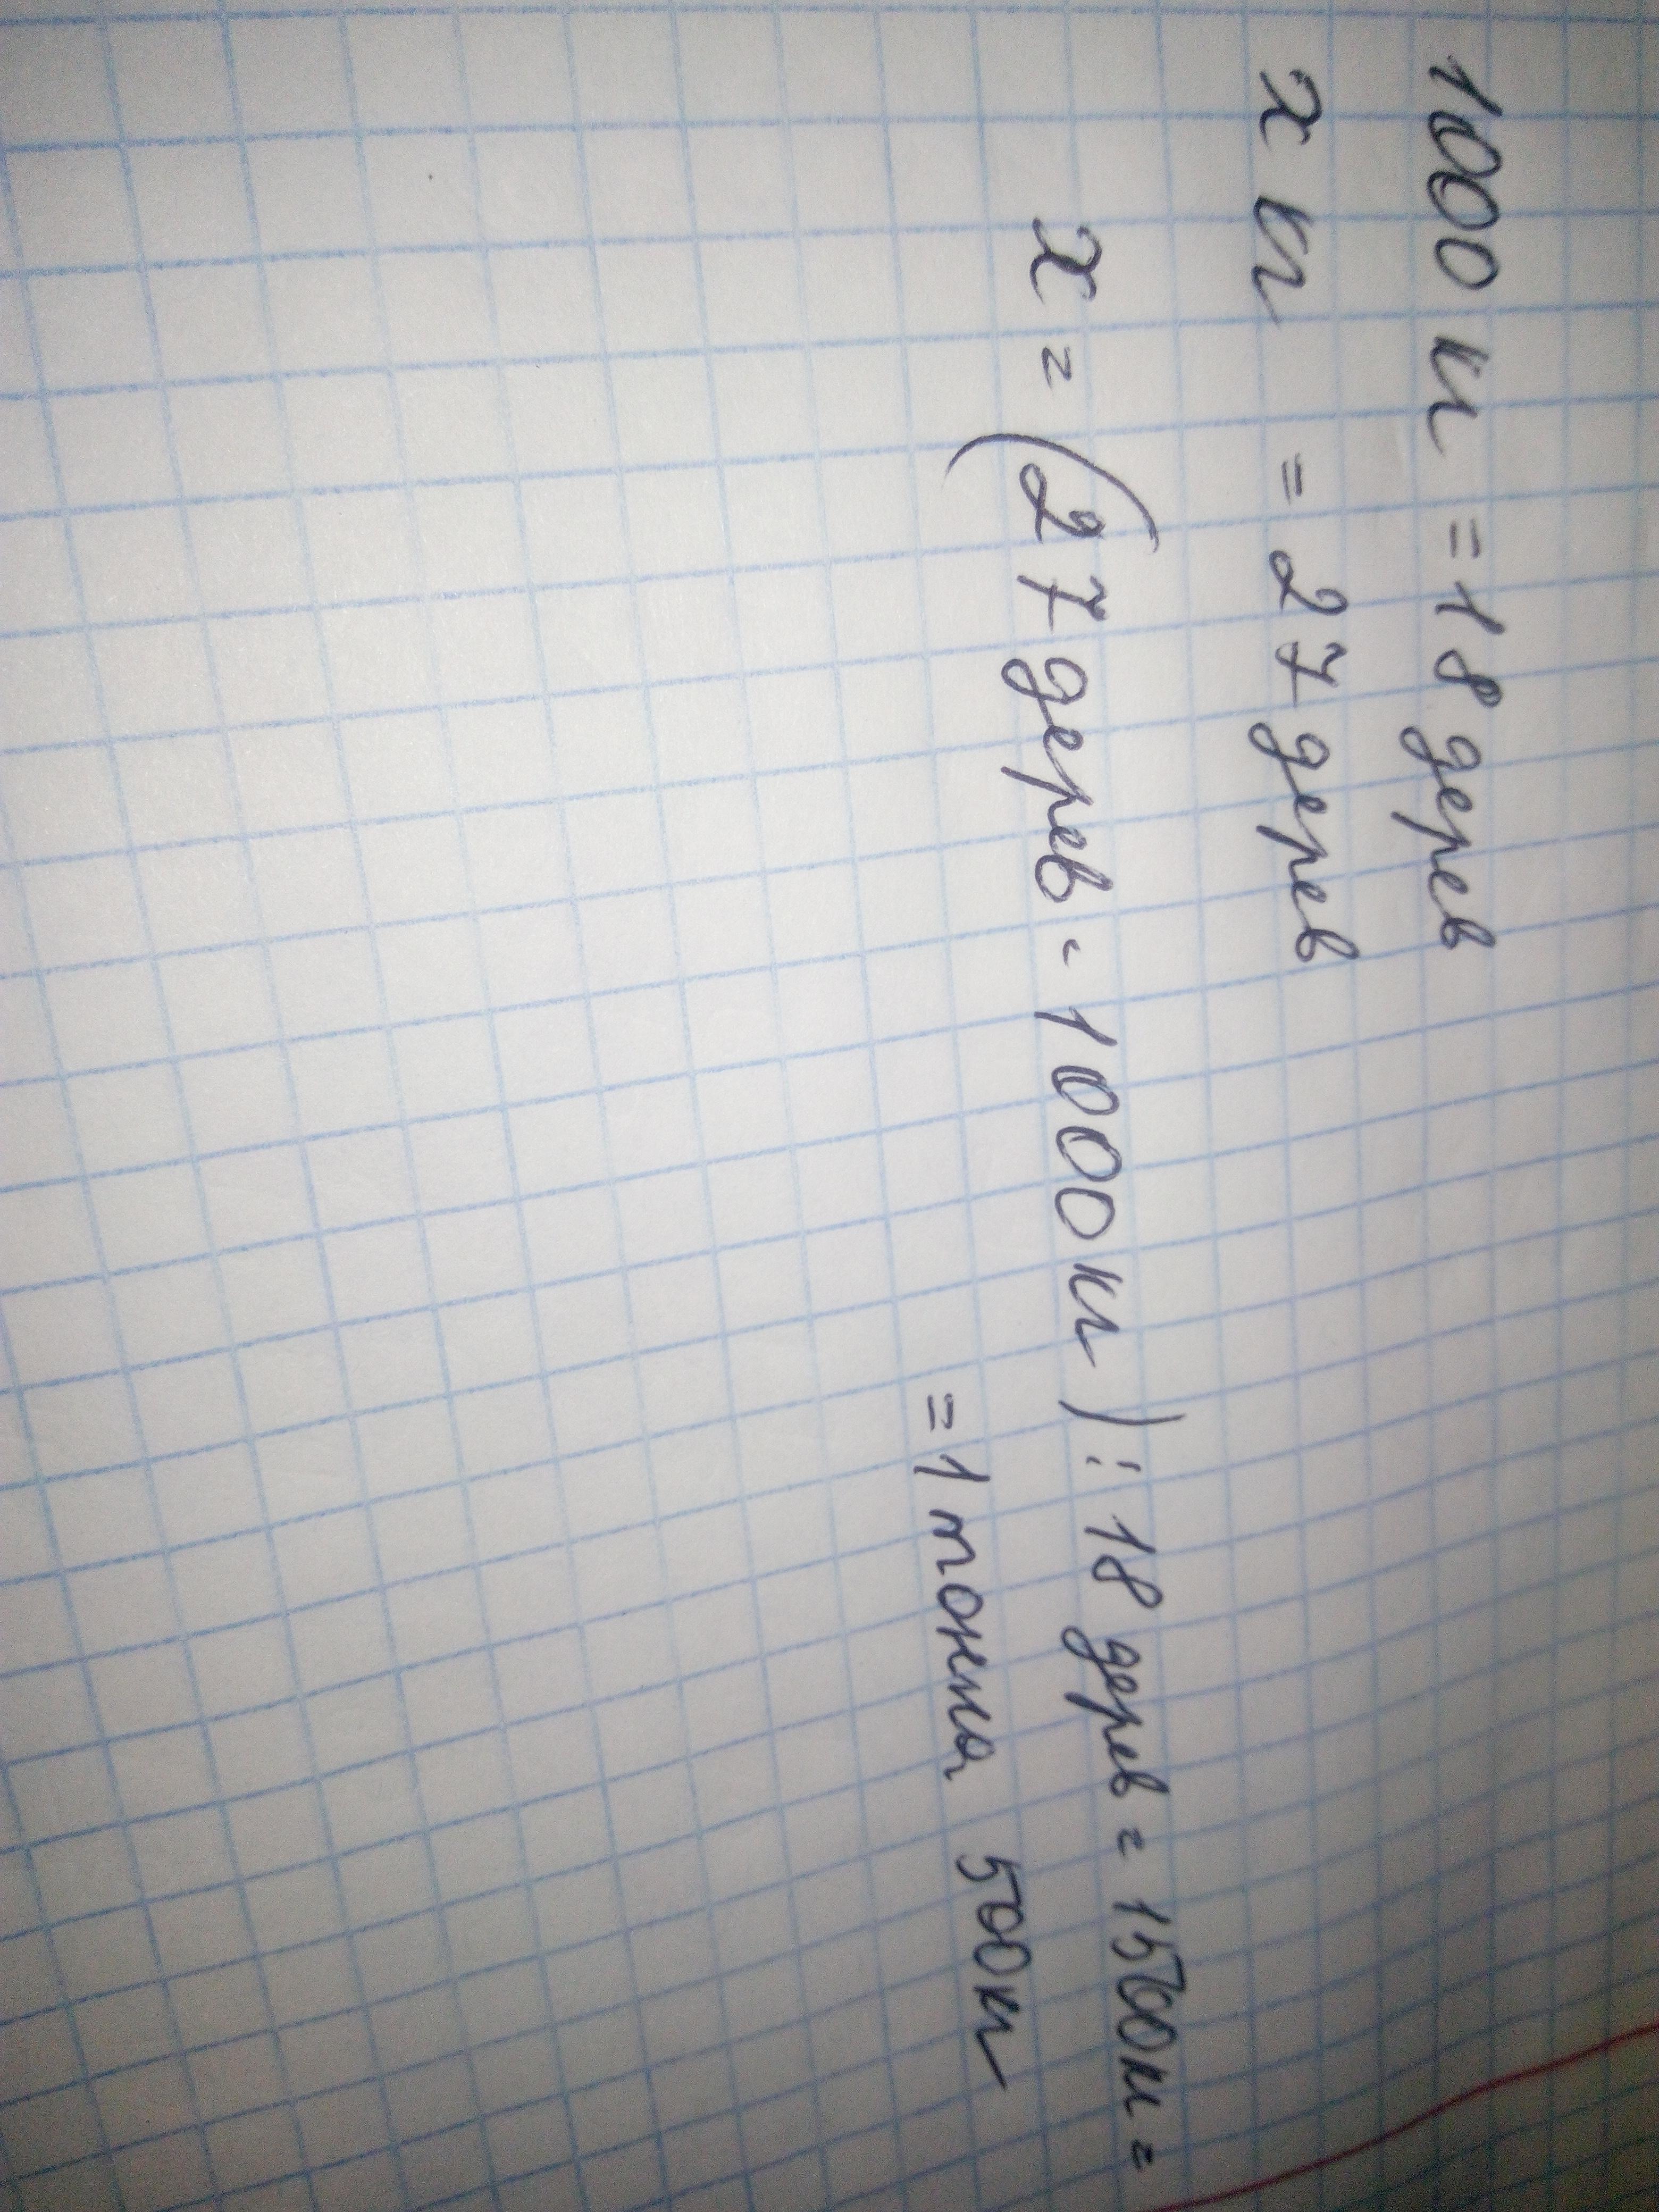 1000 кг = 18 дерев
х кг = 27 дерев
х = (27 дерев · 1000 кг) : 18 дерев = 1500 кг =
= 1 тонна 500 кг